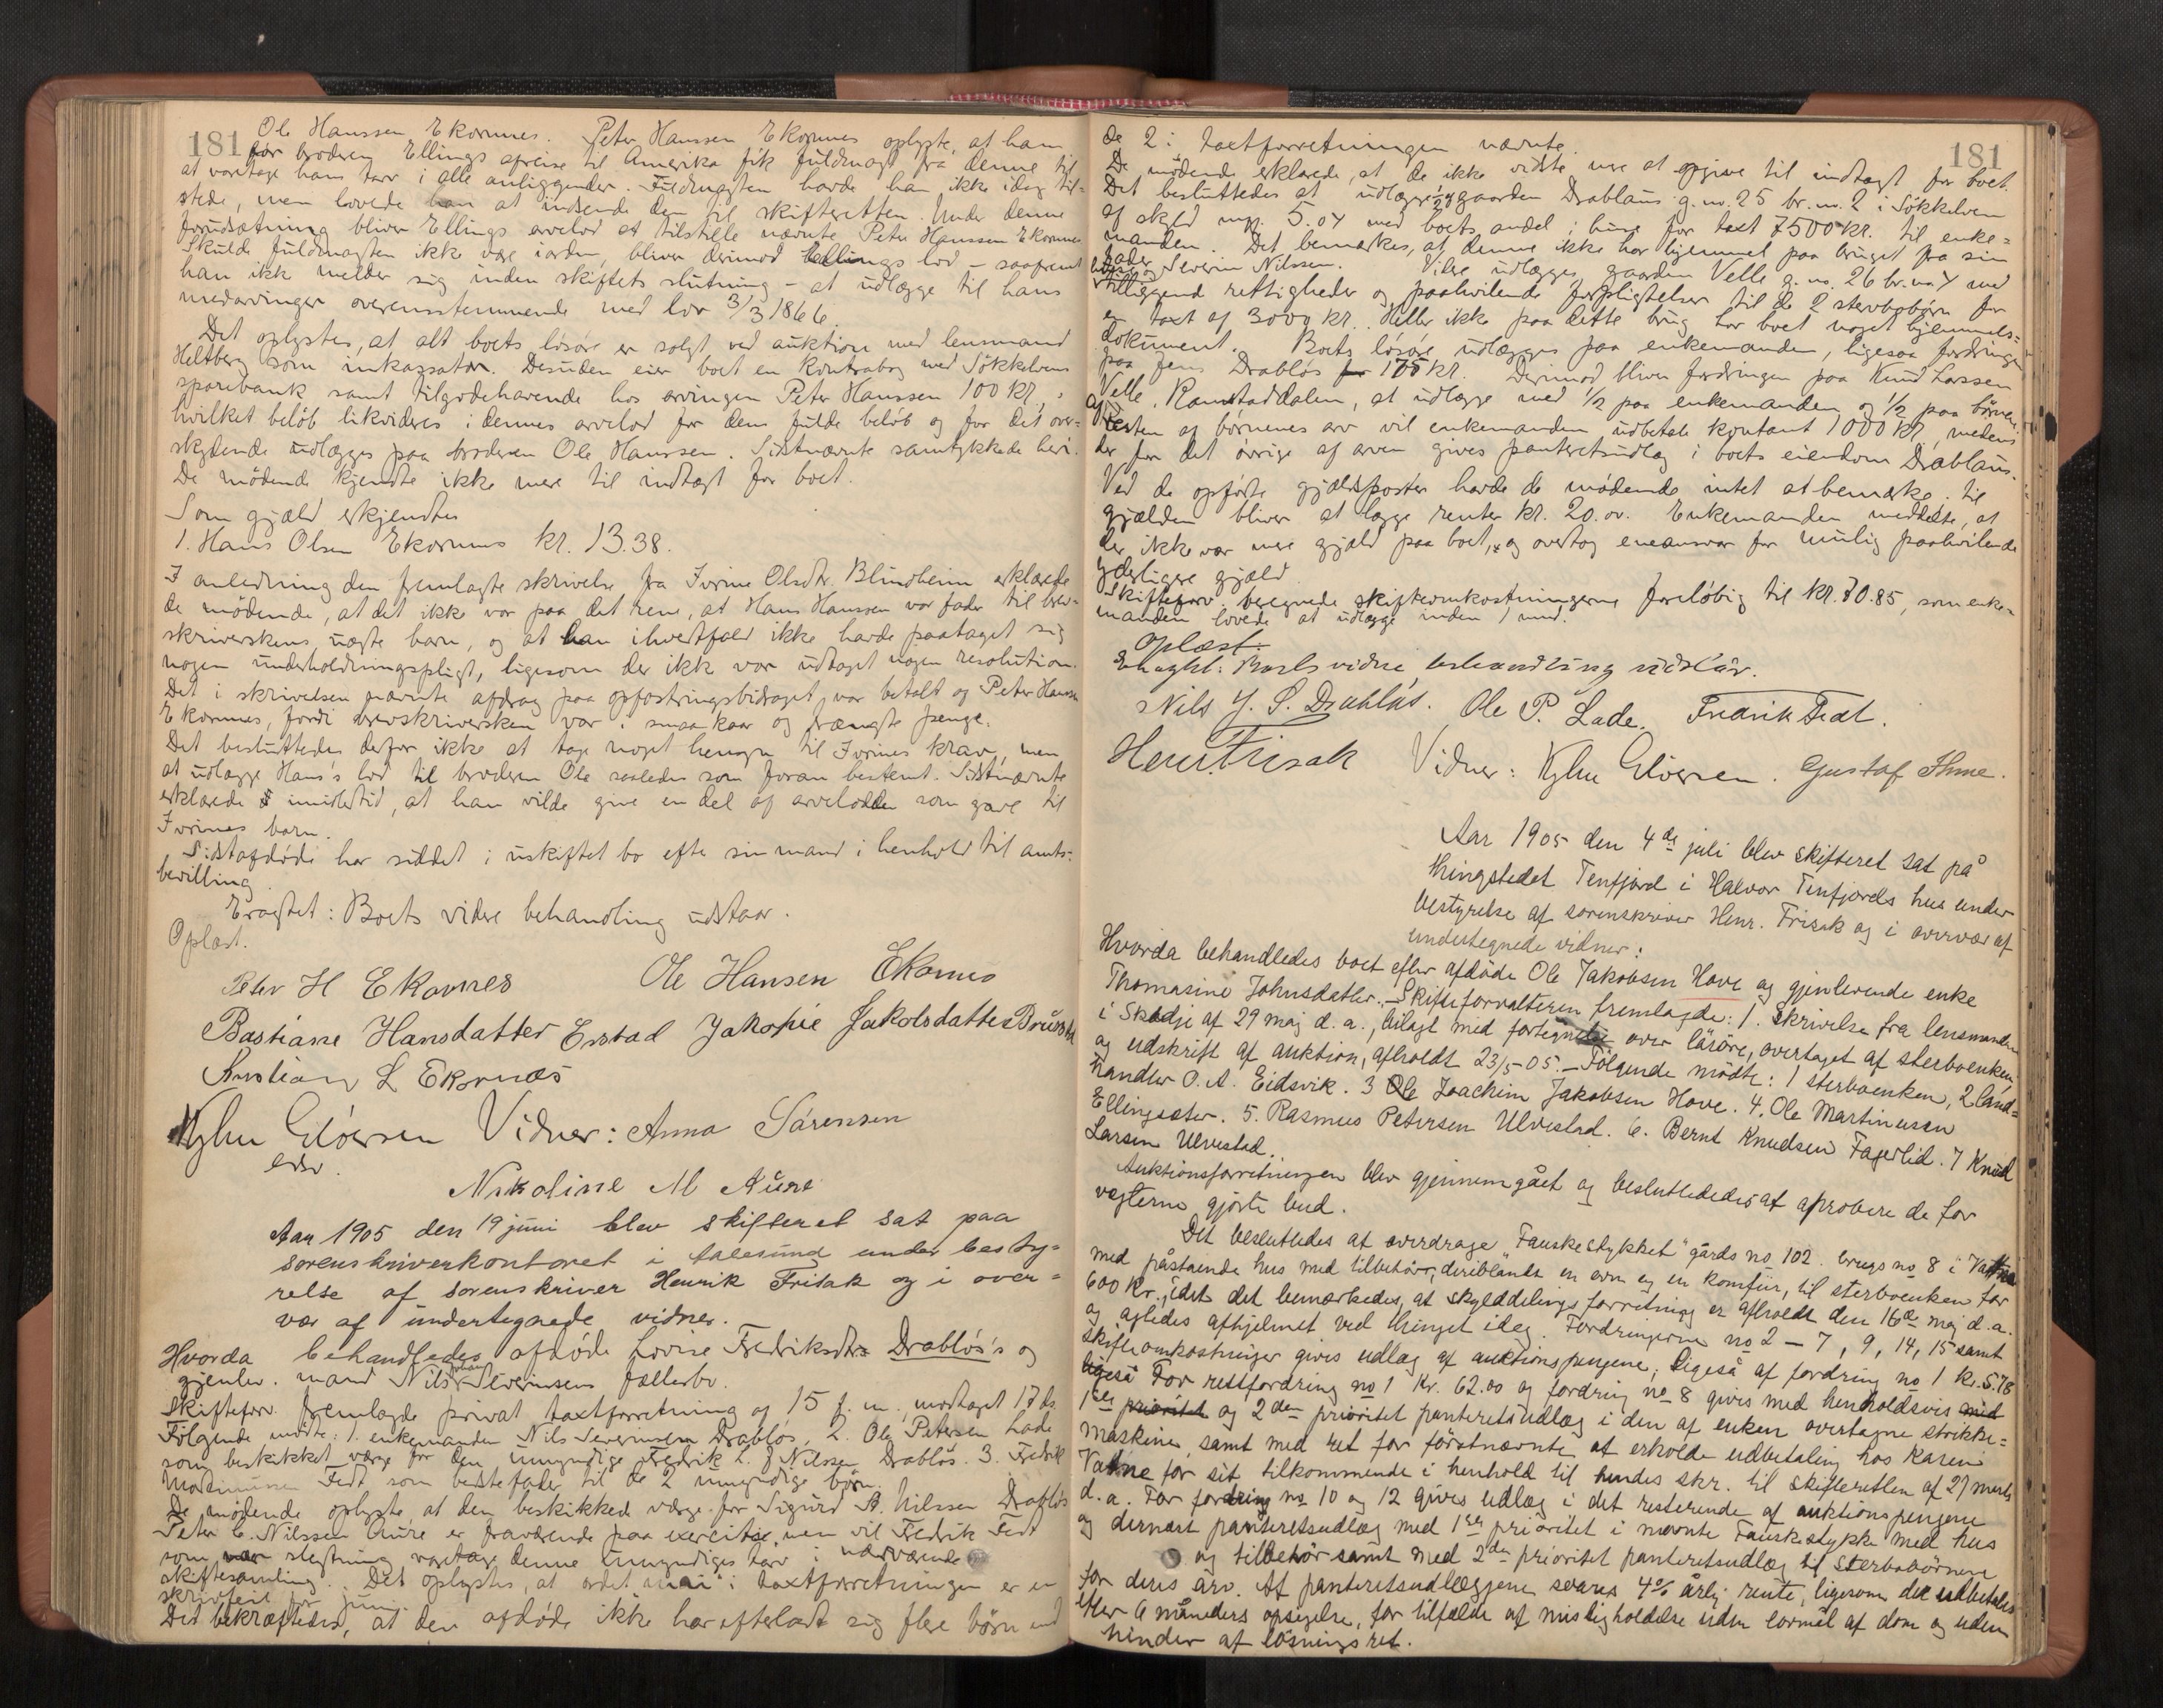 181
Ole Hanssen Ekornnes. Peter Hanssen Ekornnes oplyste, at han
før broderen Ellings afreise til Amerika fik fuldmagt fra denne til
at varetage hans tarv i alle anliggender. Fuldmagten havde han ikke idag til-
stede, men lovede han at indsende den til skifteretten. Under denne
forudsætning bliver Ellings arvelod at tilstille nævnte Peter Hanssen Ekornnes
Skulde fuldmagten ikke være iorden, bliver derimod Ellings lod – saafremt
han ikke melder sig inden skiftets slutning – at udlægge til hans
medarvinger overensstemmende med lov 3/3 1866.
Det oplystes, at alt boets løsøre er solgt ved auktion med lensmand
Heltberg som inkassator. Desuden eier boet en kontrabog med Søkkelvens
sparebank samt tilgodehavende hos arvingen Peter Hanssen 100 kr.,
hvilket beløb likvideres i dennes arvelod for dens fulde beløb og for det over-
skydende udlægges paa broderen Ole Hanssen. Sidstnævnte samtykkede heri.
De mødende kjendte ikke mere til indtægt for boet.
Som gjæld erkjendtes
1. Hans Olsen Ekornnes kr. 13.38.
I anledning den fremlagte skrivelse fra Ivrine Olsdtr. Blindheim erklærede
de mødende, at det ikke var paa det rene, at Hans Hanssen var fader til brev-
skriverskens uægte barn, og at han ihvertfald ikke havde paataget sig
nogen underholdningspligt, ligesom der ikk var udtaget nogen resolution.
Det i skrivelsen nævnte afdrag paa opfostringsbidraget, var betalt af Peter Hanssen
Ekornnes, fordi brevskriversken var i smaa kaar og trængte penge.
Det besluttedes derfor ikke at tage noget hensyn til Ivrines krav, men
at udlægge Hans's lod til broderen Ole saaledes som foran bestemt. Sidstnævnte
erklærede imidlertid, at han vilde give en del af arvelodden som gave til
Ivrines barn.
Sidstafdøde har siddet i uskiftet bo efter sin mand i henhold til amts-
bevilling.
Eragtet: Boets videre behandling udstaar.
Oplæst.
Peter H Ekornes Ole Hansen Ekornes
Bastiane Hansdatter Erstad Jakopie Jakobsdatter
Kristian L Ekornæs
Vidner: Anna Sørensen
edsv.
Nikoline M Aure
Aar 1905 den 19 juni blev skifteret sat paa
sorenskriverkontoret i Aalesund under besty-
relse af sorenskriver Henrik Frisak og i over-
vær af undertegnede vidner.
Hvorda behandledes afdøde Lovise Fredriksdtr. Drabløs's og
gjenlev. mand Nils Johan Severinsens fællesbo.
Skifteforv. fremlagde privat taxtforretning af 15 f. m., modtaget 17 ds.
Følgende mødte: 1. enkemanden Nils Severinsen Drabløs, 2. Ole Petersen Lade
som beskikket værge for den umyndige Fredrik L. J. Nilssen Drabløs. 3. Fredrik
Martinussen Fedt som bedstefader til de 2 umyndige børn.
De mødende oplyste, at den beskikkede værge for Sigurd A. Nilssen Drabløs
Peter C. Nilssen Aure er fraværende paa exercitse, men vil Fredrik Fedt
som slegtning varetage denne umyndiges tarv i nærværende
skiftesamling. Det oplystes, at ordet mai i taxtforretningen er en
skrivfeil for juni.
Det bekræftedes, at den afdøde ikke har efterladt sig flere børn end
181
de 2 i taxtforretningen nævnte.
De mødende erklærede, at de ikke vidste mere at opgive til indtægt for boet.
Det besluttedes at udlægge gaarden Drablaus g. no. 25 br. no. 2 i Søkkelven
af skyld mrk. 5.04 med boets andel i hus for taxt 7500 kr. til enke-
manden. Det bemærkes, at denne ikke har hjemmel paa bruget fra sin
fader Severin Nilssen. Videre udlægges gaarden Velle g. no. 26 br. no. 4 med
tilliggende rettigheder og paahvilende forpligtelser til de 2 stervbobørn for
en taxt af 3000 kr. Heller ikke paa dette brug har boet noget hjemmels-
dokument. Boets løsøre udlægges paa enkemanden, ligesaa fordringen
paa Jens Drabløs 175 kr. Derimod bliver fordringen paa Knud Larssen
Velle, Ramstaddalen, at udlægge med 1/2 paa enkemanden og 1/2 paa børnene.
Af resten af børnenes arv vil enkemanden udbetale kontant 1000 kr., medens
der for det øvrige af arven gives panteretsudlæg i boets eiendom Drablaus.
Ved de opførte gjældsposter havde de mødende intet at bemærke. Til
gjælden bliver at lægge renter kr. 20.00. Enkemanden meddelte, at
der ikke var mere gjæld paa boet, og overtog eneansvar for mulig paahvilende
yderligere gjæld.
Skifteforv. beregnede skifteomkostningerne foreløbig til kr. 70.85, som enke-
manden lovede at udlægge inden 1 mnd.
Oplæst.
Eragtet: Boets vidre behandling udstaar.
Nils J. S. Drabløs. Ole P. Lade. Fredrik Fedt.
Henr. Frisak Vidner: Gustaf Thune.
Aar 1905 den 4de juli blev skifteret sat på
thingstedet Tenfjord i Halvor Tenfjords hus under
bestyrelse af sorenskriver Henr. Frisak og i overvær af
undertegnede vidner:
Hvorda behandledes boet efter afdøde Ole Jakobsen Hove og gjenlevende enke
Thomasine Johnsdatter. – Skifteforvalteren fremlagde: 1. Skrivelse fra lensmanden
i Skodje af 29 maj d. a., bilagt med fortegnelse over løsøre, overtaget af sterboenken,
og udskrift af auktion, afholdt 23/5-05. – Følgende mødte: 1 sterboenken, 2 Land-
handler O. A. Eidsvik. 3 Ole Joachim Jakobsen Hove. 4. Ole Martinussen
Ellingsæter. 5. Rasmus Petersen Ulvestad. 6. Bernt Knudsen Fagerlid. 7 Knud
Larsen Ulvestad.
Auktionsforretningen blev gjennemgået og besluttededes at aprobere de for
vægterne gjorte bud.
Det besluttedes at overdrage "Fauskestykket" gårds no 102. brugs no 8 i Vatne
med påstående hus med tilbehør, deriblandt en ovn og en komfur, til sterboenken for
600 Kr., idet det bemærkedes, at skylddelingsforretning er afholdt den 16de maj d. a.
og agtedes afhjemlet ved thinget idag. Fordringerne no 2 – 7, 9, 14, 15 samt
skifteomkostninger gives udlæg af auktionspengene, ligeså af fordring no 1 kr. 5.78
For restfordring no 1 Kr. 62.00 og fordring no 8 gives med henholdsvis
1ste og 2den prioritet panteretsudlæg i den af enken overtagne strikke-
maskine, samt med ret for førstnævnte at erholde udbetaling hos Karen
Vatne for sit tilkommende i henhold til hendes skr. til skifteretten af 27 marts
d. a. For fordring no 10 og 12 gives udlæg i det resterende af auktionspengene
og dernæst panteretsudlæg med 1ste prioritet i nævnte Fauskestykke med hus
og tilbehør samt med 2den prioritet panteretsudlæg til sterbobørnene
for deres arv. Af panteretsudlæggene svares 4% årlig rente, ligesom de udbetales
efter 6 måneders opsigelse, for tilfælde af misligholdelse uden lovmål af dom og uden
hinder af løsningsret.